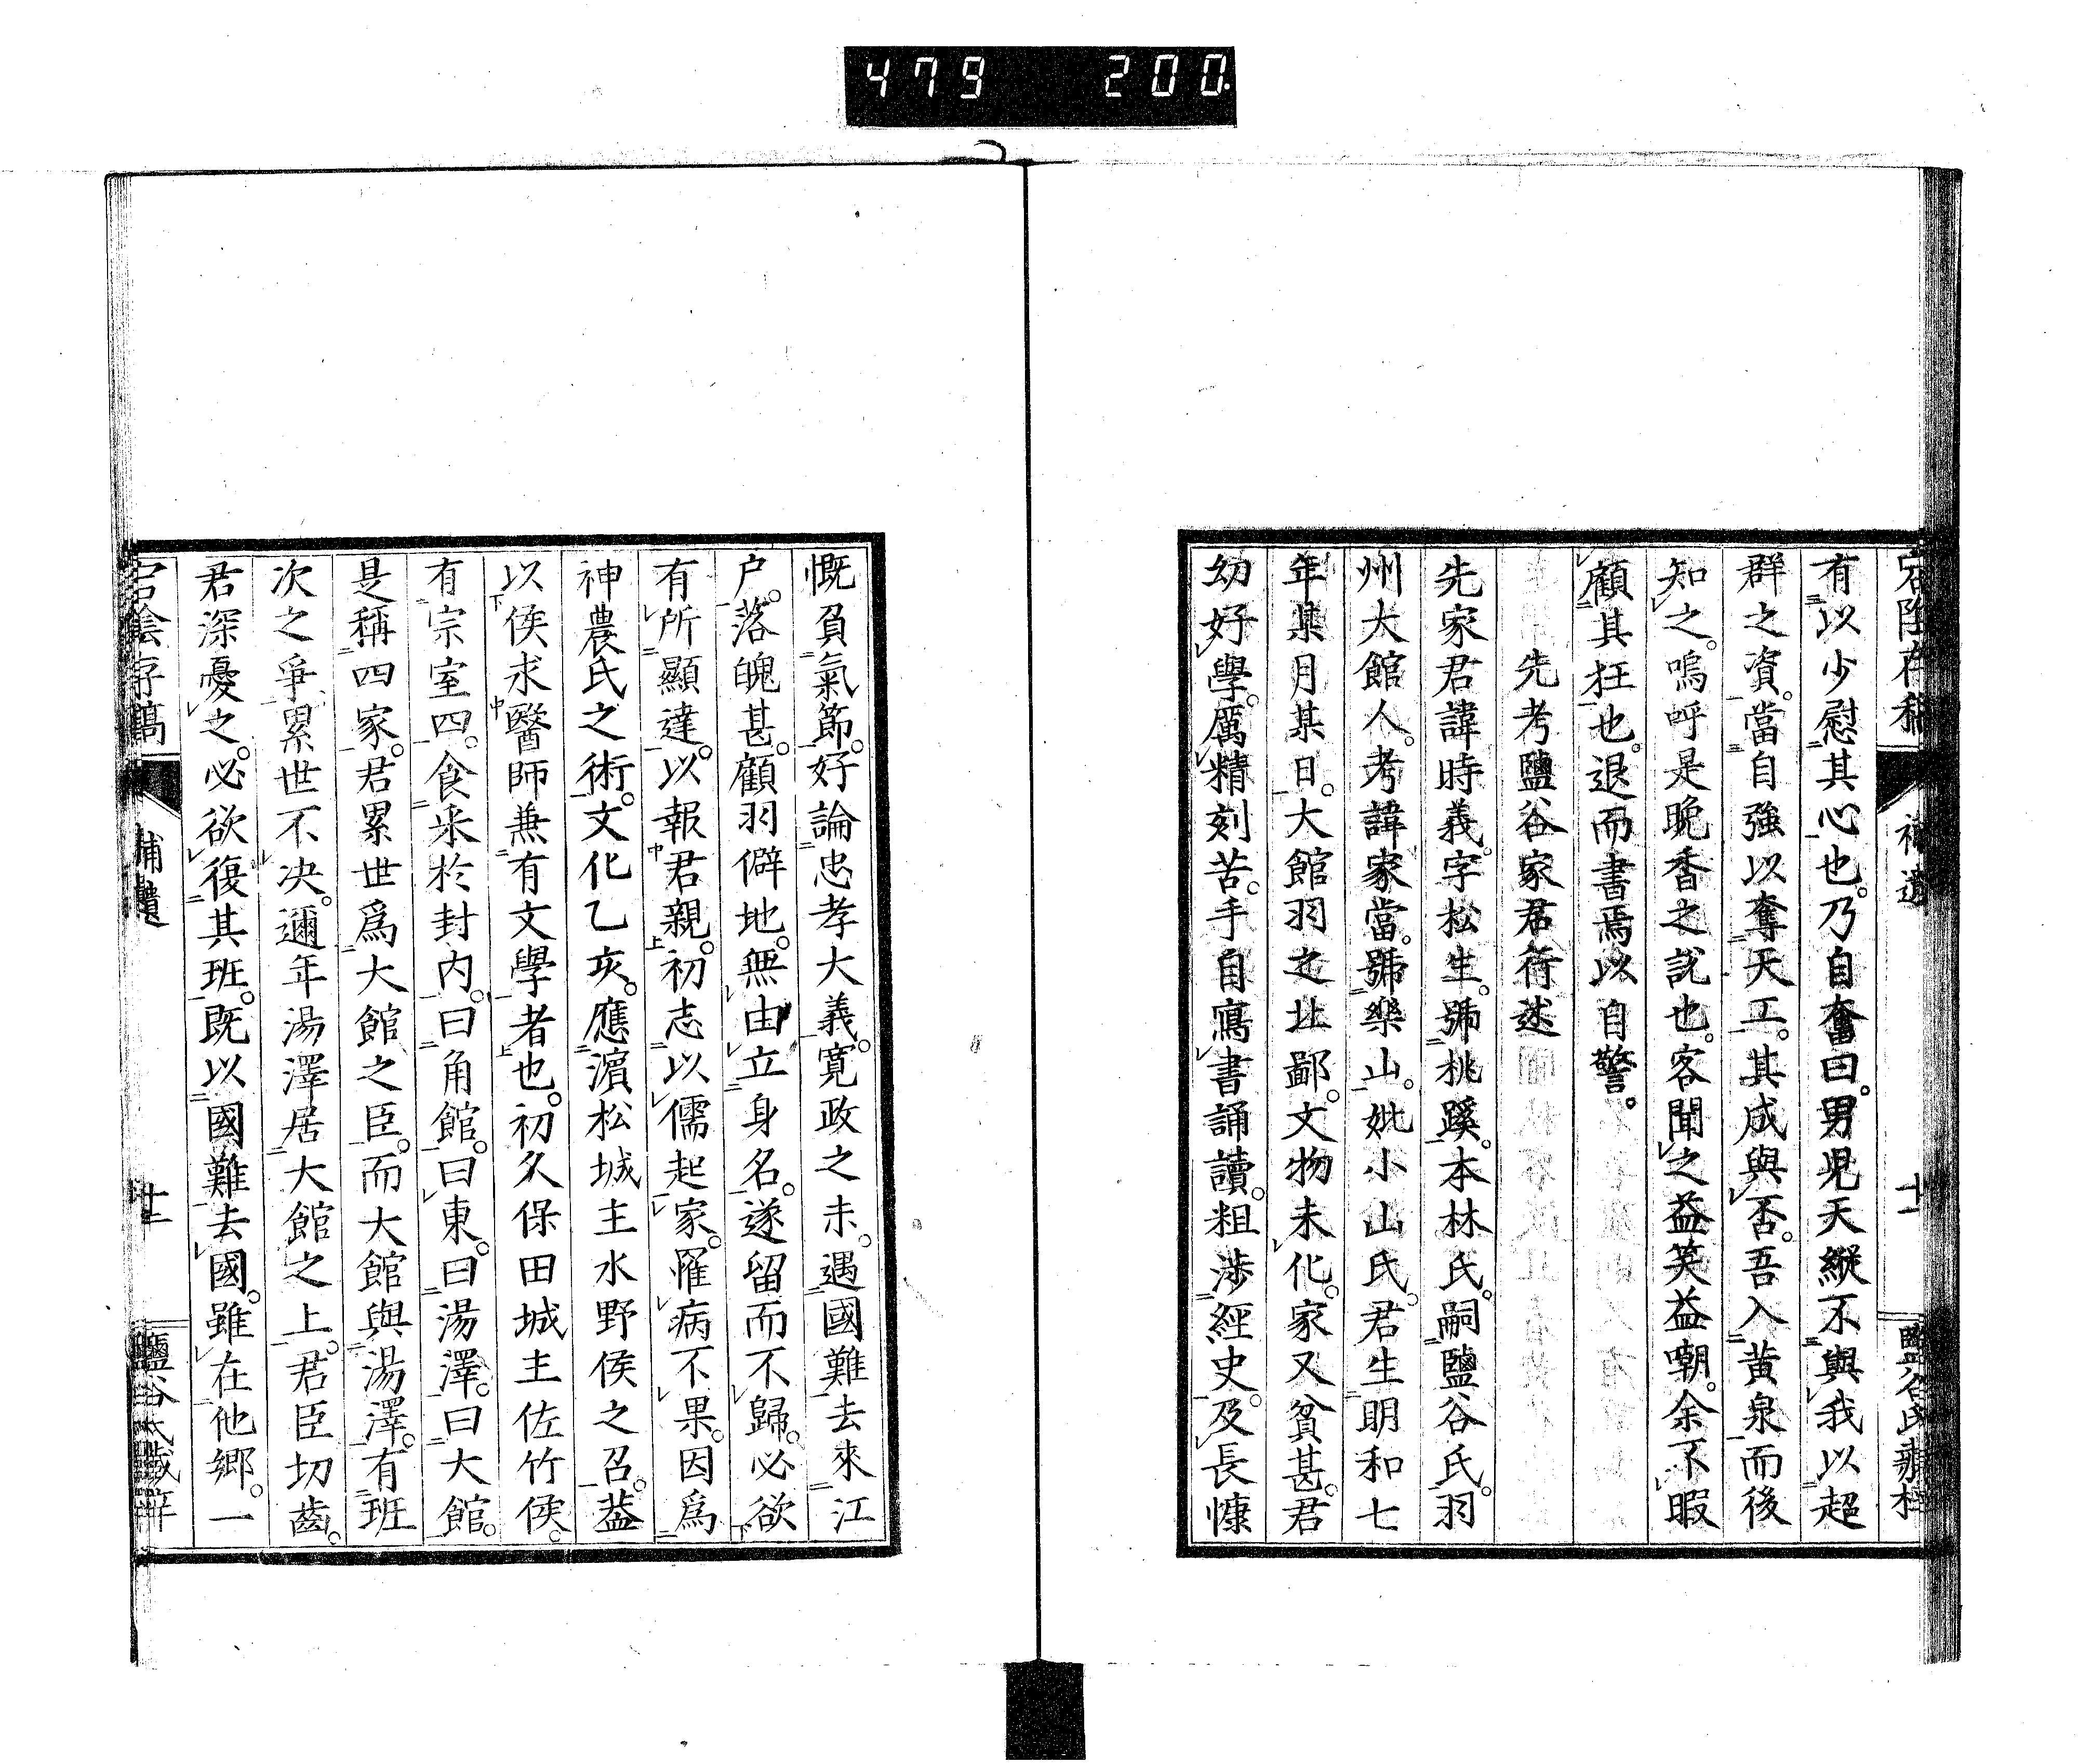 479 200
宕陰存稿 補遺 十一 鹽谷氏藏梓
有以少慰其心也。乃自奮曰。男児天縱不與我以超
群之資。當自強以奪天工。其成與否。吾入黄泉而後
知之。嗚呼是晩香之說也。客聞之益笑益嘲。余不暇
顧其狂也。退而書焉以自警。
先考鹽谷家君行述
先家君諱時義。字松生。號桃蹊。本林氏。嗣鹽谷氏。羽
州大館人。考諱家當。號樂山。妣小山氏。君生明和七
年某月某日。大館羽之北鄙。文物未化。家又貧甚。君
幼好學。厲精刻苦。手自寫書誦讀。粗渉經史。及長慷
慨負氣節。好論忠孝大義。寛政之末。遇國難去來江
戸。落魄甚。顧羽僻地。無由立身名。遂留而不歸。必欲
有所顯達。以報君親。初志以儒起家。罹病不果。因爲
神農氏之術。文化乙亥。應濵松城主水野侯之召。葢
以侯求醫師兼有文學者也。初久保田城主佐竹侯。
有宗室四。食釆於封内。曰角館。曰東。曰湯澤。曰大館。
是稱四家。君累世爲大館之臣。而大館與湯澤。有班
次之爭。累世不决。邇年湯澤居大館之上。君臣切齒。
君深憂之。必欲復其班。既以國難去國。雖在他郷。一
宕陰存稿 補遺 十二 鹽谷氏藏梓